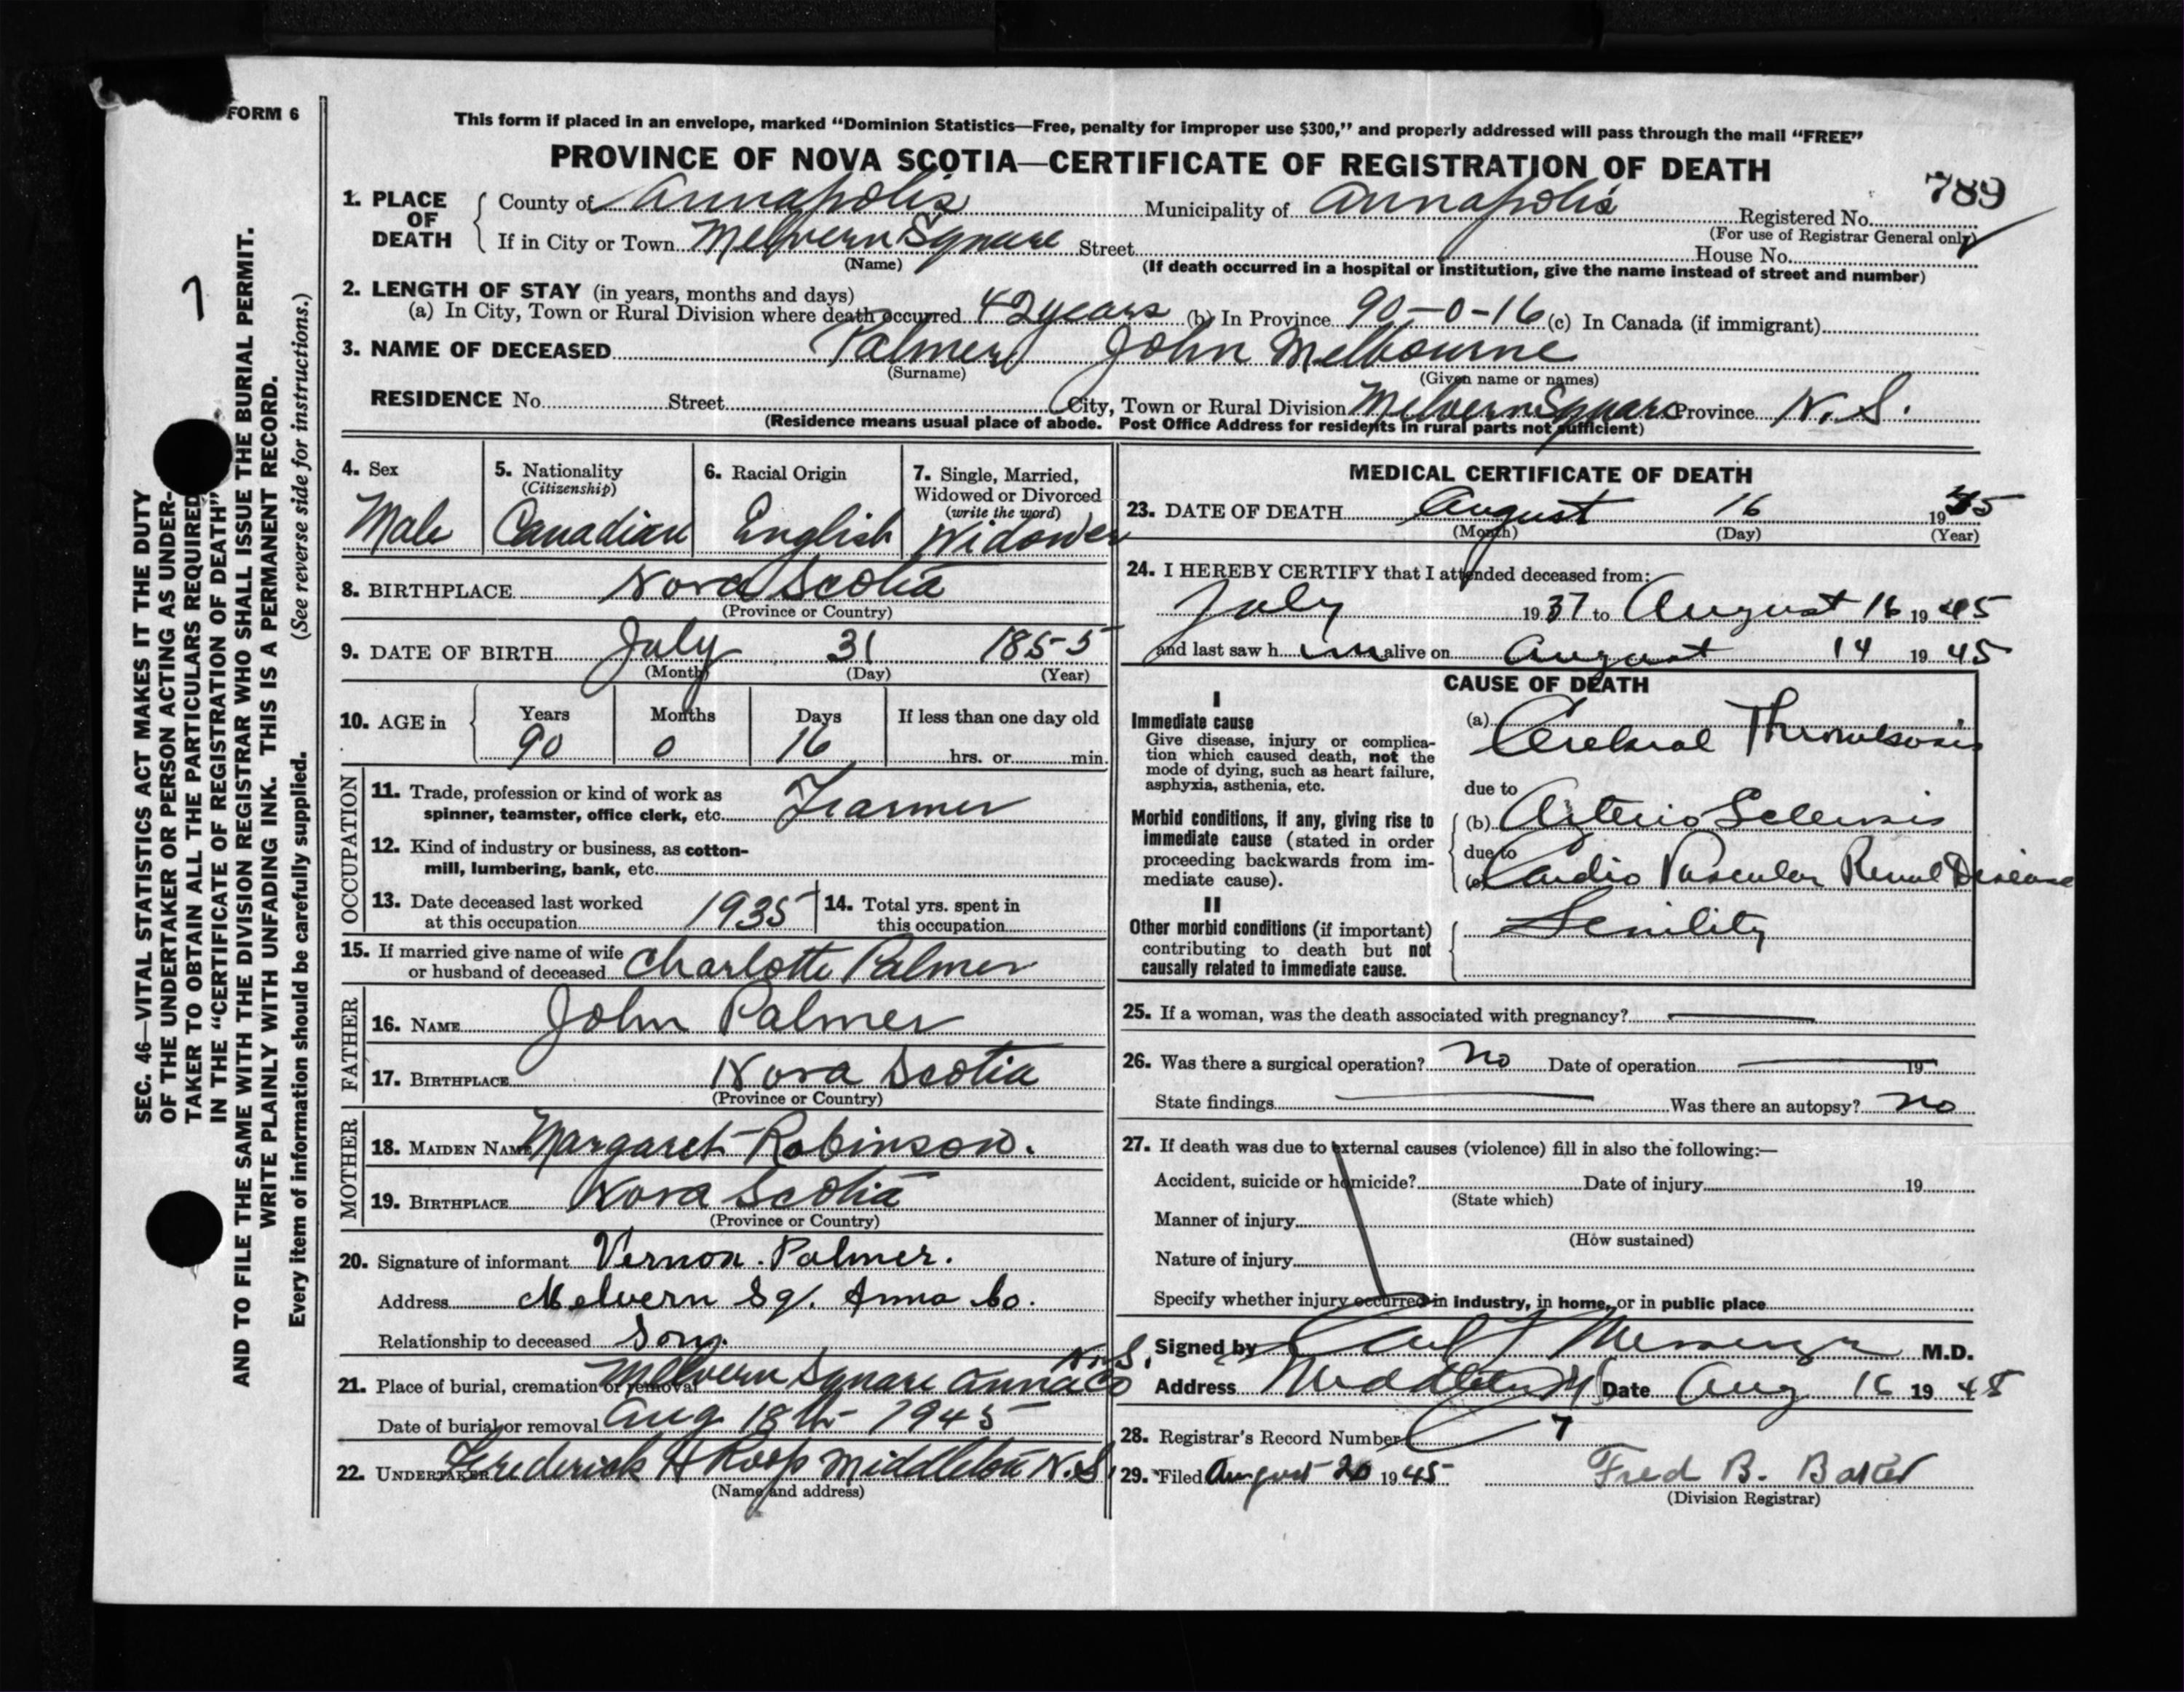 FORM 6
This form if placed in an envelope, marked “Dominion Statistics—Free, penalty for improper use $300,” and properly addressed will pass through the mail “FREE”
PROVINCE OF NOVA SCOTIA—CERTIFICATE OF REGISTRATION OF DEATH
789
1. PLACE OF DEATH County of Annapolis Municipality of Annapolis Registered No.
(For use of Registrar General only)
If in City or Town Melvern Square Street House No.
(Name) (If death occurred in a hospital or institution, give the name instead of street and number)
2. LENGTH OF STAY (in years, months and days)
(a) In City, Town or Rural Division where death occurred 42 years (b) In Province 90-0-16 (c) In Canada (if immigrant)
3. NAME OF DECEASED Palmer John Melbourne
(Surname) (Given name or names)
RESIDENCE No. Street City, Town or Rural Division Melvern Square Province N.S.
(Residence means usual place of abode. Post Office Address for residents in rural parts not sufficient)
4. Sex Male
5. Nationality (Citizenship) Canadian
6. Racial Origin English
7. Single, Married, Widowed or Divorced (write the word) Widower
8. BIRTHPLACE Nova Scotia
(Province or Country)
9. DATE OF BIRTH July 31 1855
(Month) (Day) (Year)
10. AGE in Years Months Days If less than one day old
90 0 16 hrs. or min.
OCCUPATION
11. Trade, profession or kind of work as
spinner, teamster, office clerk, etc. Farmer
12. Kind of industry or business, as cotton-
mill, lumbering, bank, etc.
13. Date deceased last worked
at this occupation 1935
14. Total yrs. spent in
this occupation
15. If married give name of wife
or husband of deceased Charlotte Palmer
FATHER
16. NAME John Palmer
17. BIRTHPLACE Nova Scotia
(Province or Country)
MOTHER
18. MAIDEN NAME Margaret Robinson.
19. BIRTHPLACE Nova Scotia
(Province or Country)
20. Signature of informant Vernon. Palmer.
Address Melvern Sq. Anna Co.
Relationship to deceased Son.
21. Place of burial, cremation or removal Melvern Square Anna Co N.S.
Date of burial or removal Aug 18th 1945
22. UNDERTAKER Frederick H Roop Middleton N.S.
(Name and address)
MEDICAL CERTIFICATE OF DEATH
23. DATE OF DEATH August 16 1945
(Month) (Day) (Year)
24. I HEREBY CERTIFY that I attended deceased from:
July 1937 to August 16 1945
and last saw h im alive on August 14 1945
CAUSE OF DEATH
I
Immediate cause
Give disease, injury or complica-
tion which caused death, not the
mode of dying, such as heart failure,
asphyxia, asthenia, etc.
(a) Cerebral Thrombosis
due to
Morbid conditions, if any, giving rise to
immediate cause (stated in order
proceeding backwards from im-
mediate cause).
(b) Arterio Sclerosis
due to
(c) Cardio Vascular Renal Disease
II
Other morbid conditions (if important)
contributing to death but not
causally related to immediate cause.
Senility
25. If a woman, was the death associated with pregnancy?
26. Was there a surgical operation? no Date of operation 19
State findings Was there an autopsy? no
27. If death was due to external causes (violence) fill in also the following:—
Accident, suicide or homicide? Date of injury 19
(State which)
Manner of injury
(How sustained)
Nature of injury
Specify whether injury occurred in industry, in home, or in public place
Signed by Messenger M.D.
Address Middleton Date Aug 16 1945
28. Registrar's Record Number 7
29. Filed August 20 1945 Fred B. Baker
(Division Registrar)
7
SEC. 46—VITAL STATISTICS ACT MAKES IT THE DUTY
OF THE UNDERTAKER OR PERSON ACTING AS UNDER-
TAKER TO OBTAIN ALL THE PARTICULARS REQUIRED
IN THE “CERTIFICATE OF REGISTRATION OF DEATH”
AND TO FILE THE SAME WITH THE DIVISION REGISTRAR WHO SHALL ISSUE THE BURIAL PERMIT.
WRITE PLAINLY WITH UNFADING INK. THIS IS A PERMANENT RECORD.
Every item of information should be carefully supplied. (See reverse side for instructions.)